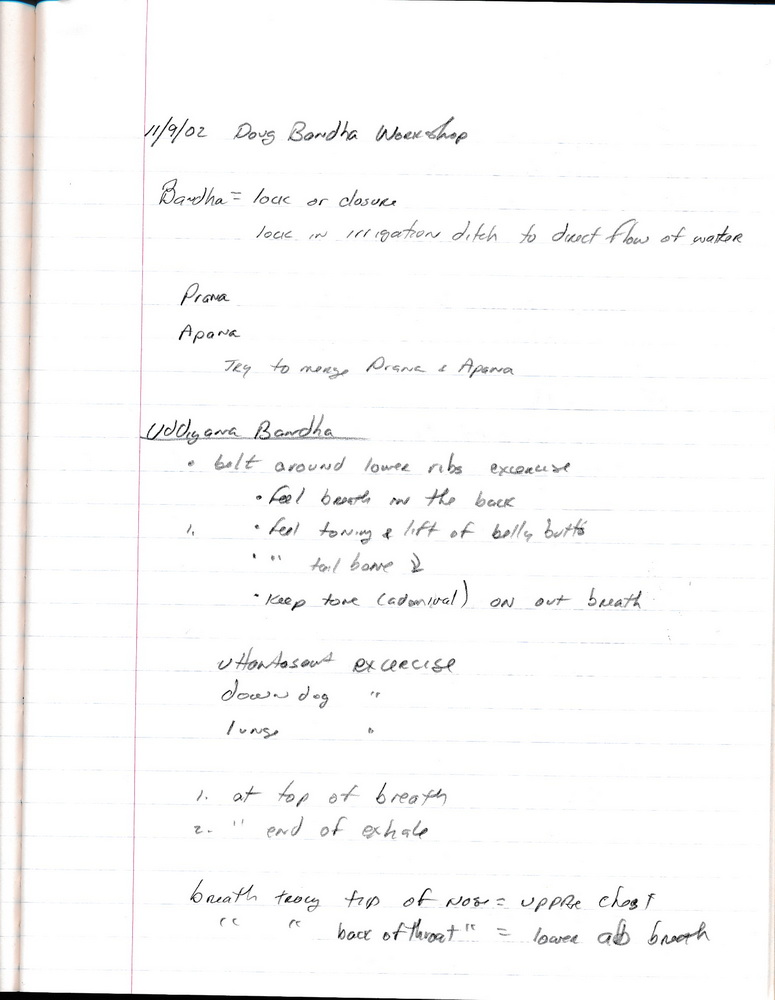 11/9/02 Doug Bandha Workshop
Bandha = lock or closure
lock in irrigation ditch to direct flow of water
Prana
Apana
Try to merge Prana & Apana
Uddiyana Bandha
• belt around lower ribs excercise
• Feel breath in the back
1. • Feel toning & lift of belly button
• " tail bone ↓
• Keep tone (adominal) on out breath
excercise
down dog "
lunge "
1. at top of breath
2. " end of exhale
breath tip of nose = upper chest
" " back of throat " = lower ab breath